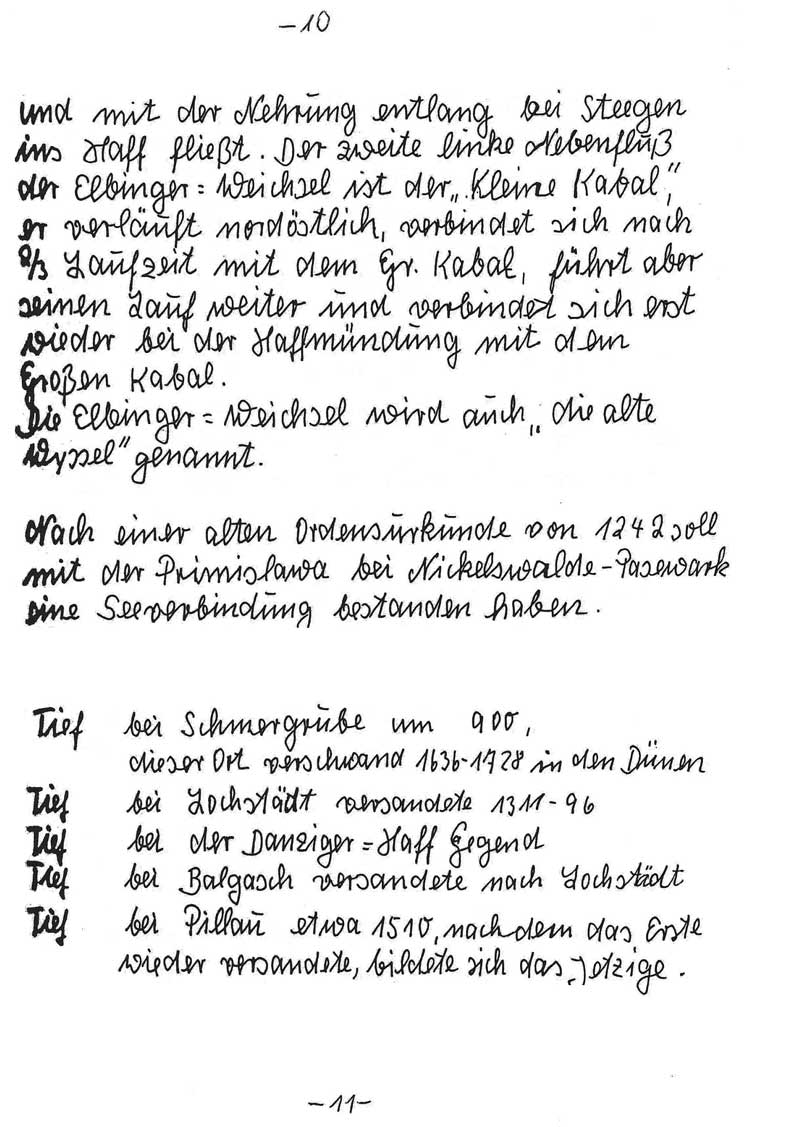 -10
und mit der Nehrung entlang bei Steegen
ins Haff fließt. Der zweite linke Nebenfluß
der Elbinger=Weichsel ist der „Kleine Kabal",
er verläuft nordöstlich, verbindet sich nach
2/3 Laufzeit mit dem Gr. Kabal, führt aber
seinen Lauf weiter und verbindet sich erst
wieder bei der Haffmündung mit dem
Großen Kabal.
Die Elbinger=Weichsel wird auch „die alte
Wyssel" genannt.
Nach einer alten Ordensurkunde von 1242 soll
mit der Primislawa bei Nickelswalde-Pasewark
eine Seeverbindung bestanden haben.
Tief bei Schmergrube um 900,
dieser Ort verschwand 1636-1728 in den Dünen
Tief bei Lochstädt versandete 1311-96
Tief bei der Danziger=Haff Gegend
Tief bei Balgasch versandete nach Lochstädt
Tief bei Pillau etwa 1510, nachdem das Erste
wieder versandete, bildete sich das Jetzige.
-11-